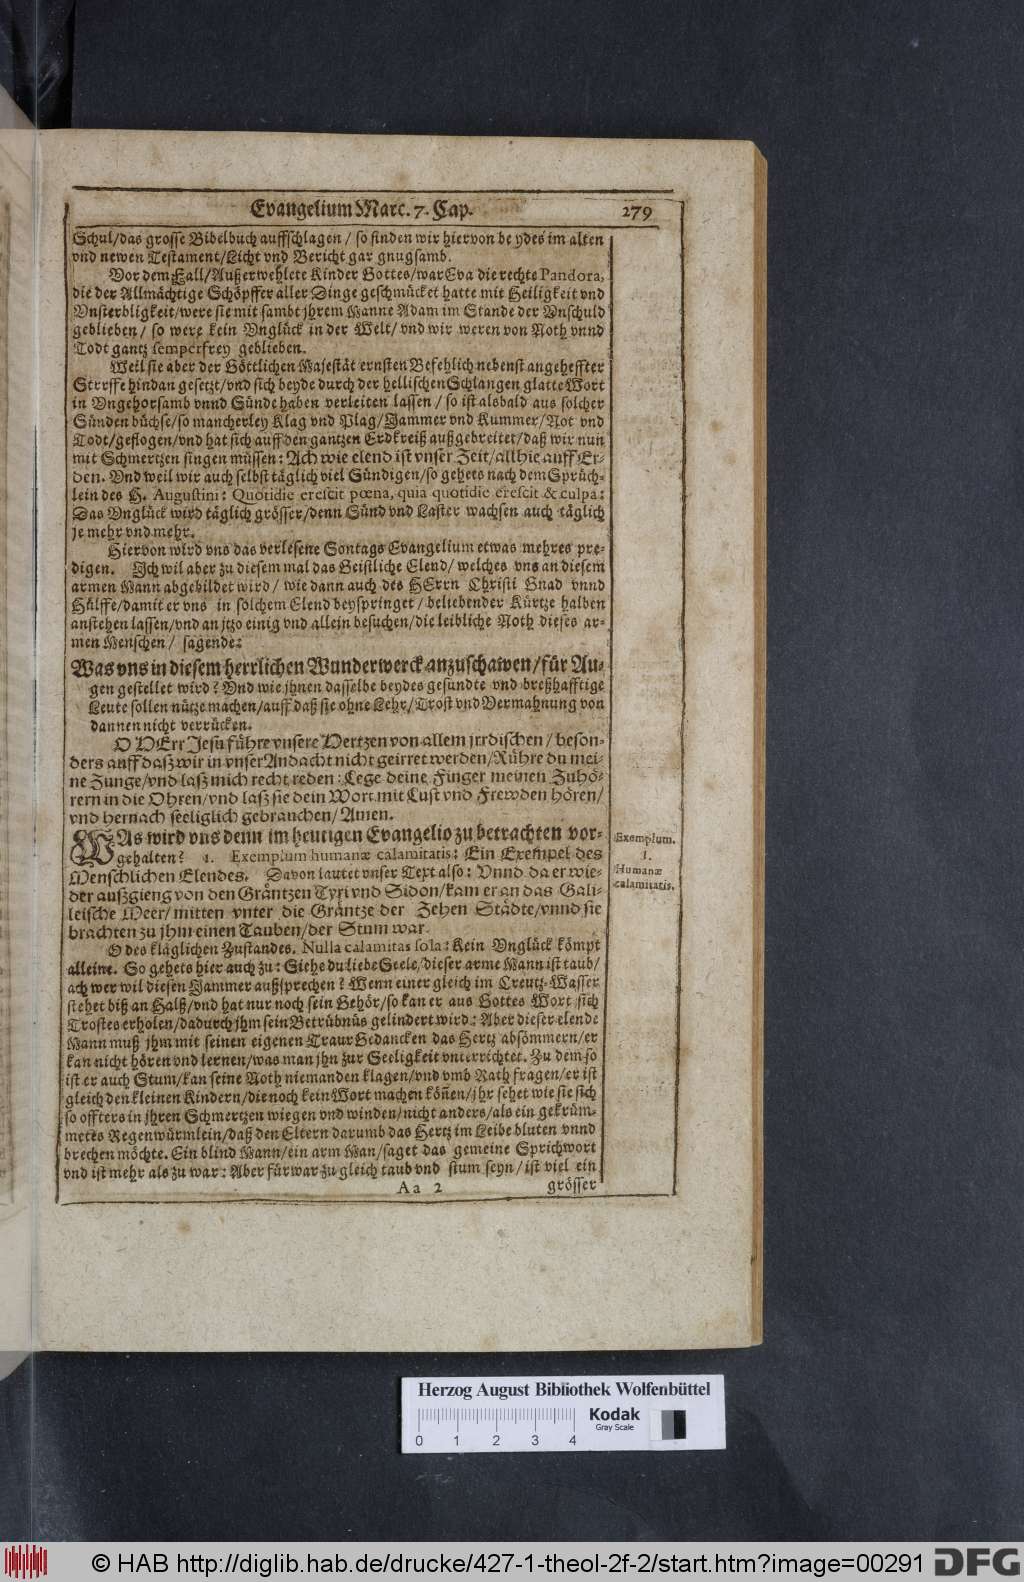 Evangelium Marc. 7. Cap. 279
Schul/das grosse Bibelbuch auffschlagen / so finden wir hiervon beydes im alten
vnd newen Testament/Licht vnd Bericht gar gnugsamb.
Vor dem Fall/Außerwehlete Kinder Gottes/war Eva die rechte Pandora,
die der Allmächtige Schöpffer aller Dinge geschmücket hatte mit Heiligkeit vnd
Vnsterbligkeit/were sie mit sambt jhrem Manne Adam im Stande der Vnschuld
geblieben / so were kein Vnglück in der Welt/ vnd wir weren von Noth vnnd
Todt gantz semperfrey geblieben.
Weil sie aber der Göttlichen Majestät ernsten Befehlich nebenst angeheffter
Strrffe hindan gesetzt/vnd sich beyde durch der hellischen Schlangen glatte Wort
in Vngehorsamb vnnd Sünde haben verleiten lassen / so ist alsbald aus solcher
Sünden büchse/so mancherley Klag vnd Plag/Jammer vnd Kummer/Not vnd
Todt/geflogen/vnd hat sich auff den gantzen Erdkreiß außgebreitet/daß wir nun
mit Schmertzen singen müssen: Ach wie elend ist vnser Zeit/allhie auff Er-
den. Vnd weil wir auch selbst täglich viel Sündigen/so gehets nach dem Sprüch-
lein des H. Augustini: Quotidie crescit pœna, quia quotidie crescit & culpa:
Das Vnglück wird täglich grösser/denn Sünd vnd Laster wachsen auch täglich
je mehr vnd mehr.
Hiervon wird vns das verlesene Sontags Evangelium etwas mehres pre-
digen. Ich wil aber zu diesem mal das Geistliche Elend/ welches vns an diesem
armen Mann abgebildet wird / wie dann auch des HErrn Christi Gnad vnnd
Hülffe/damit er vns in solchem Elend beyspringet / beliebender Kürtze halben
anstehen lassen/vnd an jtzo einig vnd allein besuchen/die leibliche Noth dieses ar-
men Menschen / sagende:
Was vns in diesem herrlichen Wunderwerck anzuschawen/für Au-
gen gestellet wird? Vnd wie jhnen dasselbe beydes gesundte vnd breßhafftige
Leute sollen nütze machen/auff daß sie ohne Lehr/Trost vnd Vermahnung von
dannen nicht verrücken.
O HErr Jesu führe vnsere Hertzen von allem jrrdischen / beson-
ders auff daß wir in vnser Andacht nicht geirret werden/Rühre du mei-
ne Zunge/vnd laß mich recht reden: Lege deine Finger meinen Zuhö-
rern in die Ohren/vnd laß sie dein Wort mit Lust vnd Frewden hören/
vnd hernach seeliglich gebrauchen/ Amen.
WAs wird vns denn im heutigen Evangelio zu betrachten vor-
gehalten? 1. Exemplum humanæ calamitatis: Ein Exempel des
Menschlichen Elendes. Davon lautet vnser Text also: Vnnd da er wie-
der außgieng von den Gräntzen Tyri vnd Sidon/kam er an das Gali-
leische Meer/ mitten vnter die Gräntze der Zehen Städte/vnnd sie
brachten zu jhm einen Tauben/der Stum war.
Exemplum.
1.
Humanæ
calamitatis.
O des kläglichen Zustandes. Nulla calamitas sola: Kein Vnglück kömpt
alleine. So gehets hier auch zu: Siehe du liebe Seele/dieser arme Mann ist taub/
ach wer wil diesen Jammer außsprechen? Wenn einer gleich im Creutz-Wasser
stehet biß an Halß/vnd hat nur noch sein Gehör/so kan er aus Gottes Wort sich
Trostes erholen/dadurch jhm sein Betrübnüs gelindert wird: Aber dieser elende
Mann muß jhm mit seinen eigenen Traur Gedancken das Hertz absömmern/er
kan nicht hören vnd lernen/was man jhn zur Seeligkeit vnterrichtet. Zu dem so
ist er auch Stum/kan seine Noth niemanden klagen/vnd vmb Rath fragen/er ist
gleich den kleinen Kindern/die noch kein Wort machen köñen/jhr sehet wie sie sich
so offters in jhren Schmertzen wiegen vnd winden/nicht anders/als ein gekrüm-
metes Regenwürmlein/daß den Eltern darumb das Hertz im Leibe bluten vnnd
brechen möchte. Ein blind Mann/ein arm Man/saget das gemeine Sprichwort
vnd ist mehr als zu war: Aber fürwar zu gleich taub vnd stum seyn/ist viel ein
Aa 2 grösser
Herzog August Bibliothek Wolfenbüttel
0 1 2 3 4
Kodak
Gray Scale
© HAB http://diglib.hab.de/drucke/427-1-theol-2f-2/start.htm?image=00291
DFG